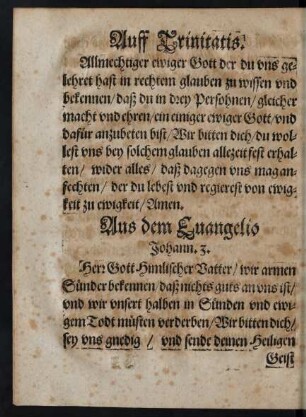 Auff Trinitatis.
Allmechtiger ewiger Gott der du vns ge-
lehret hast in rechtem glauben zu wissen vnd
bekennen / daß du in drey Persohnen / gleicher
macht vnd ehren / ein einiger ewiger Gott / vnd
dafür anzubeten bist / Wir bitten dich / du wol-
lest vns bey solchem glauben allezeit fest erhal-
ten / wider alles / daß dagegen vns mag an-
fechten / der du lebest vnd regierest von ewig-
keit zu ewigkeit / Amen.
Aus dem Euangelio
Johann. 3.
Herr Gott Himlischer Vatter / wir armen
Sünder bekennen daß nichts guts an vns ist /
vnd wir vnsert halben in Sünden vnd ewi-
gem Todt müsten verderben / Wir bitten dich /
sey vns gnedig / vnd sende deinen Heiligen
Geist